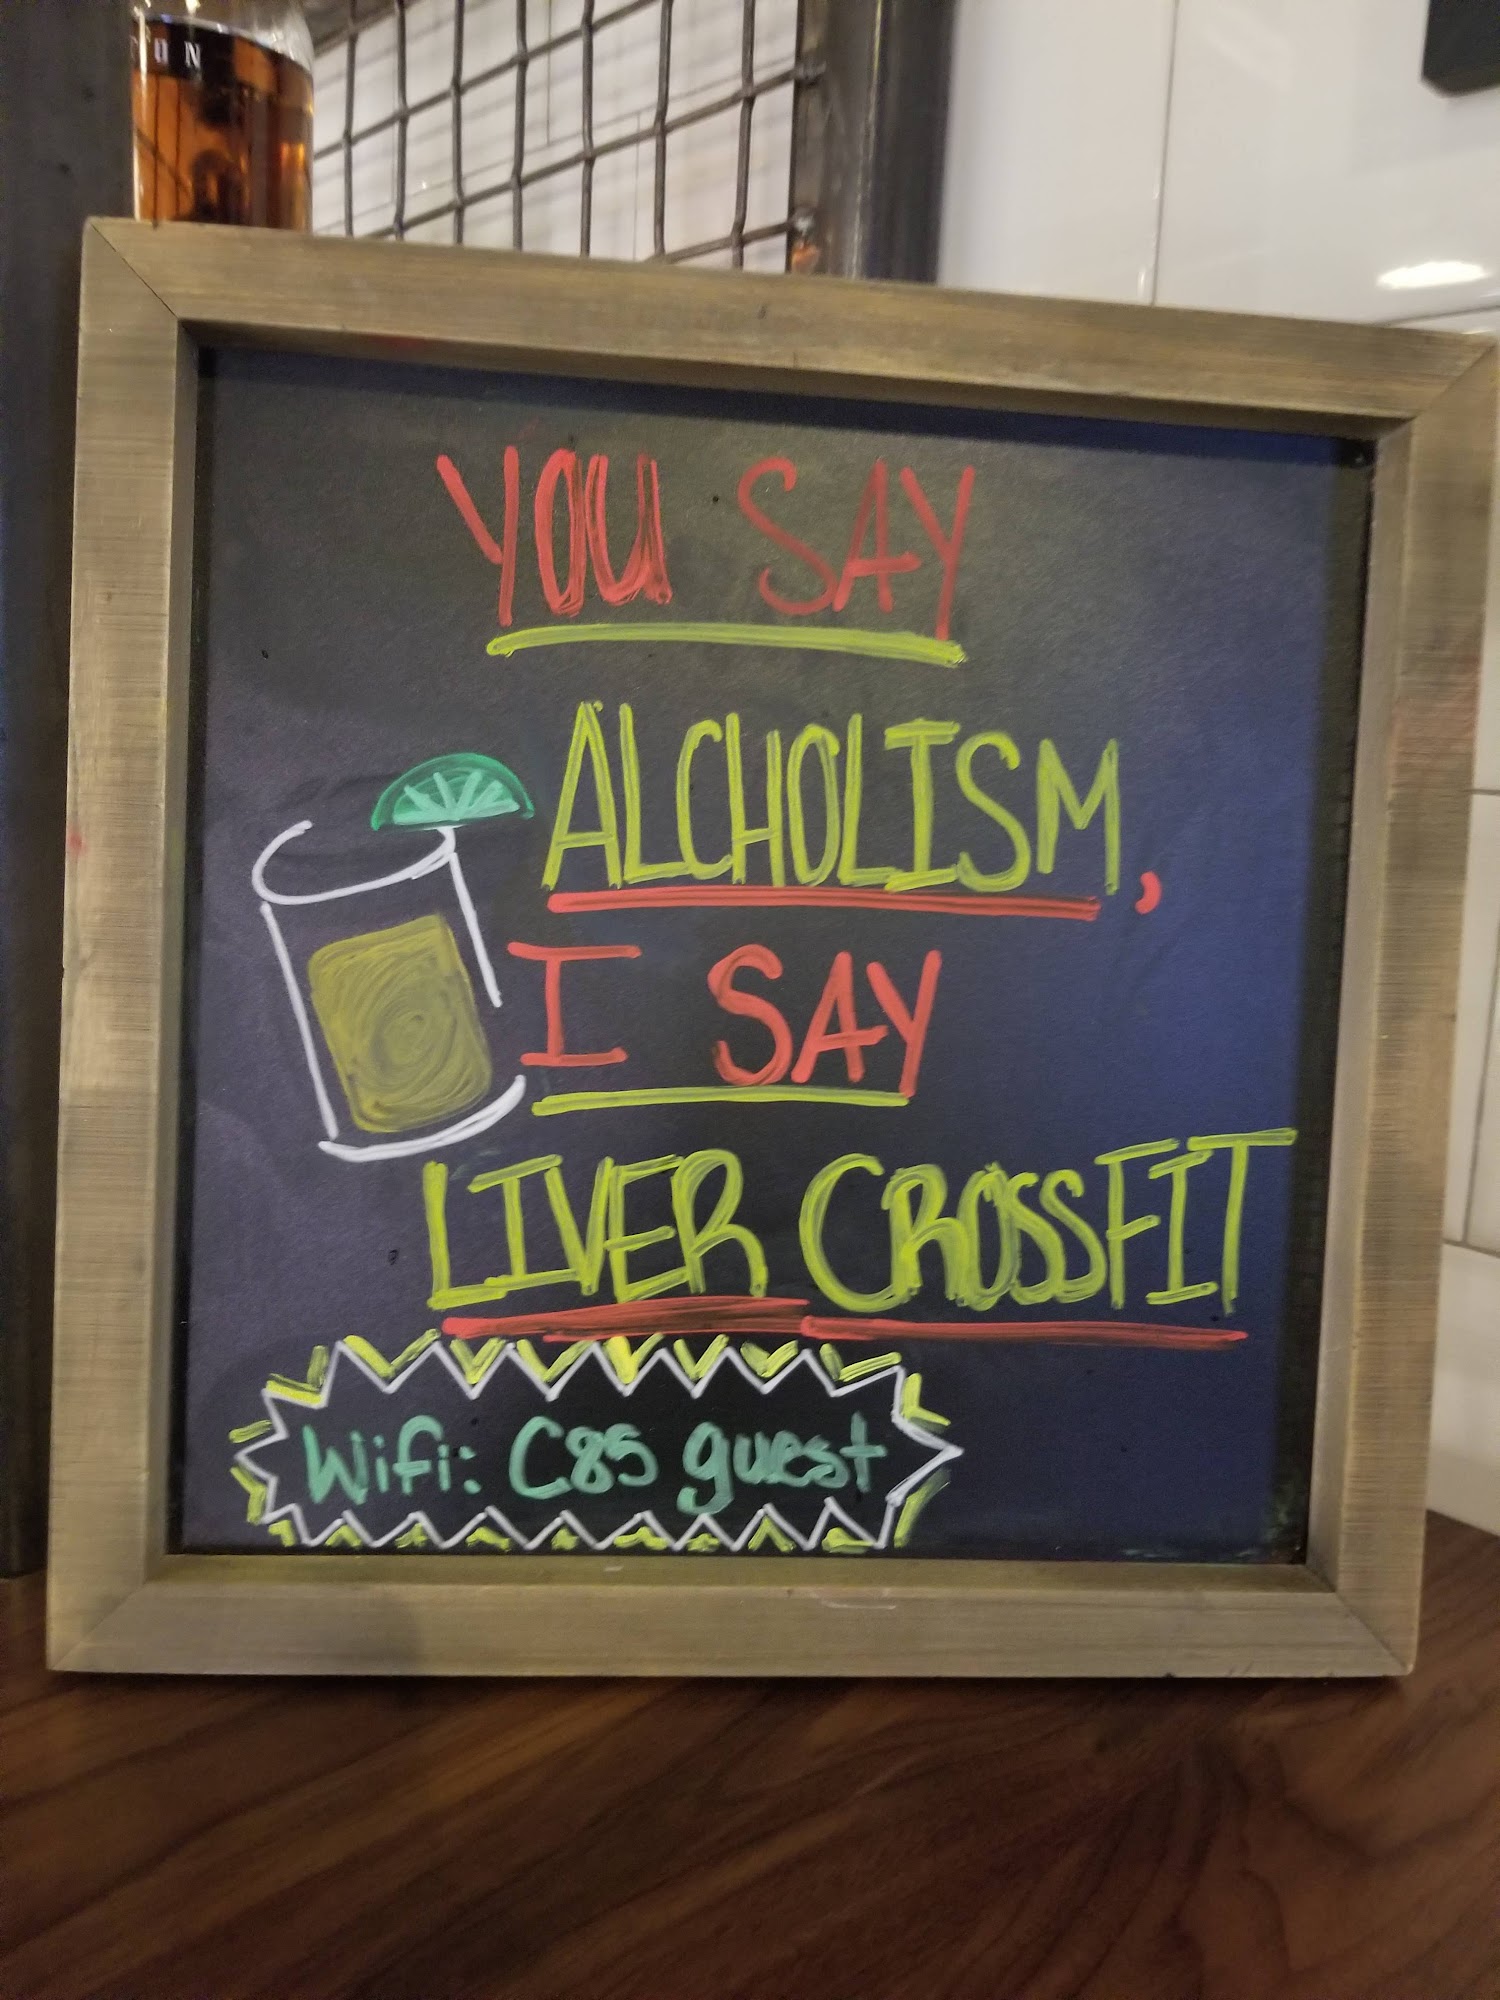 ON
YOU SAY
ALCHOLISM,
I SAY
LIVER CROSSFIT
Wifi: C85 guest